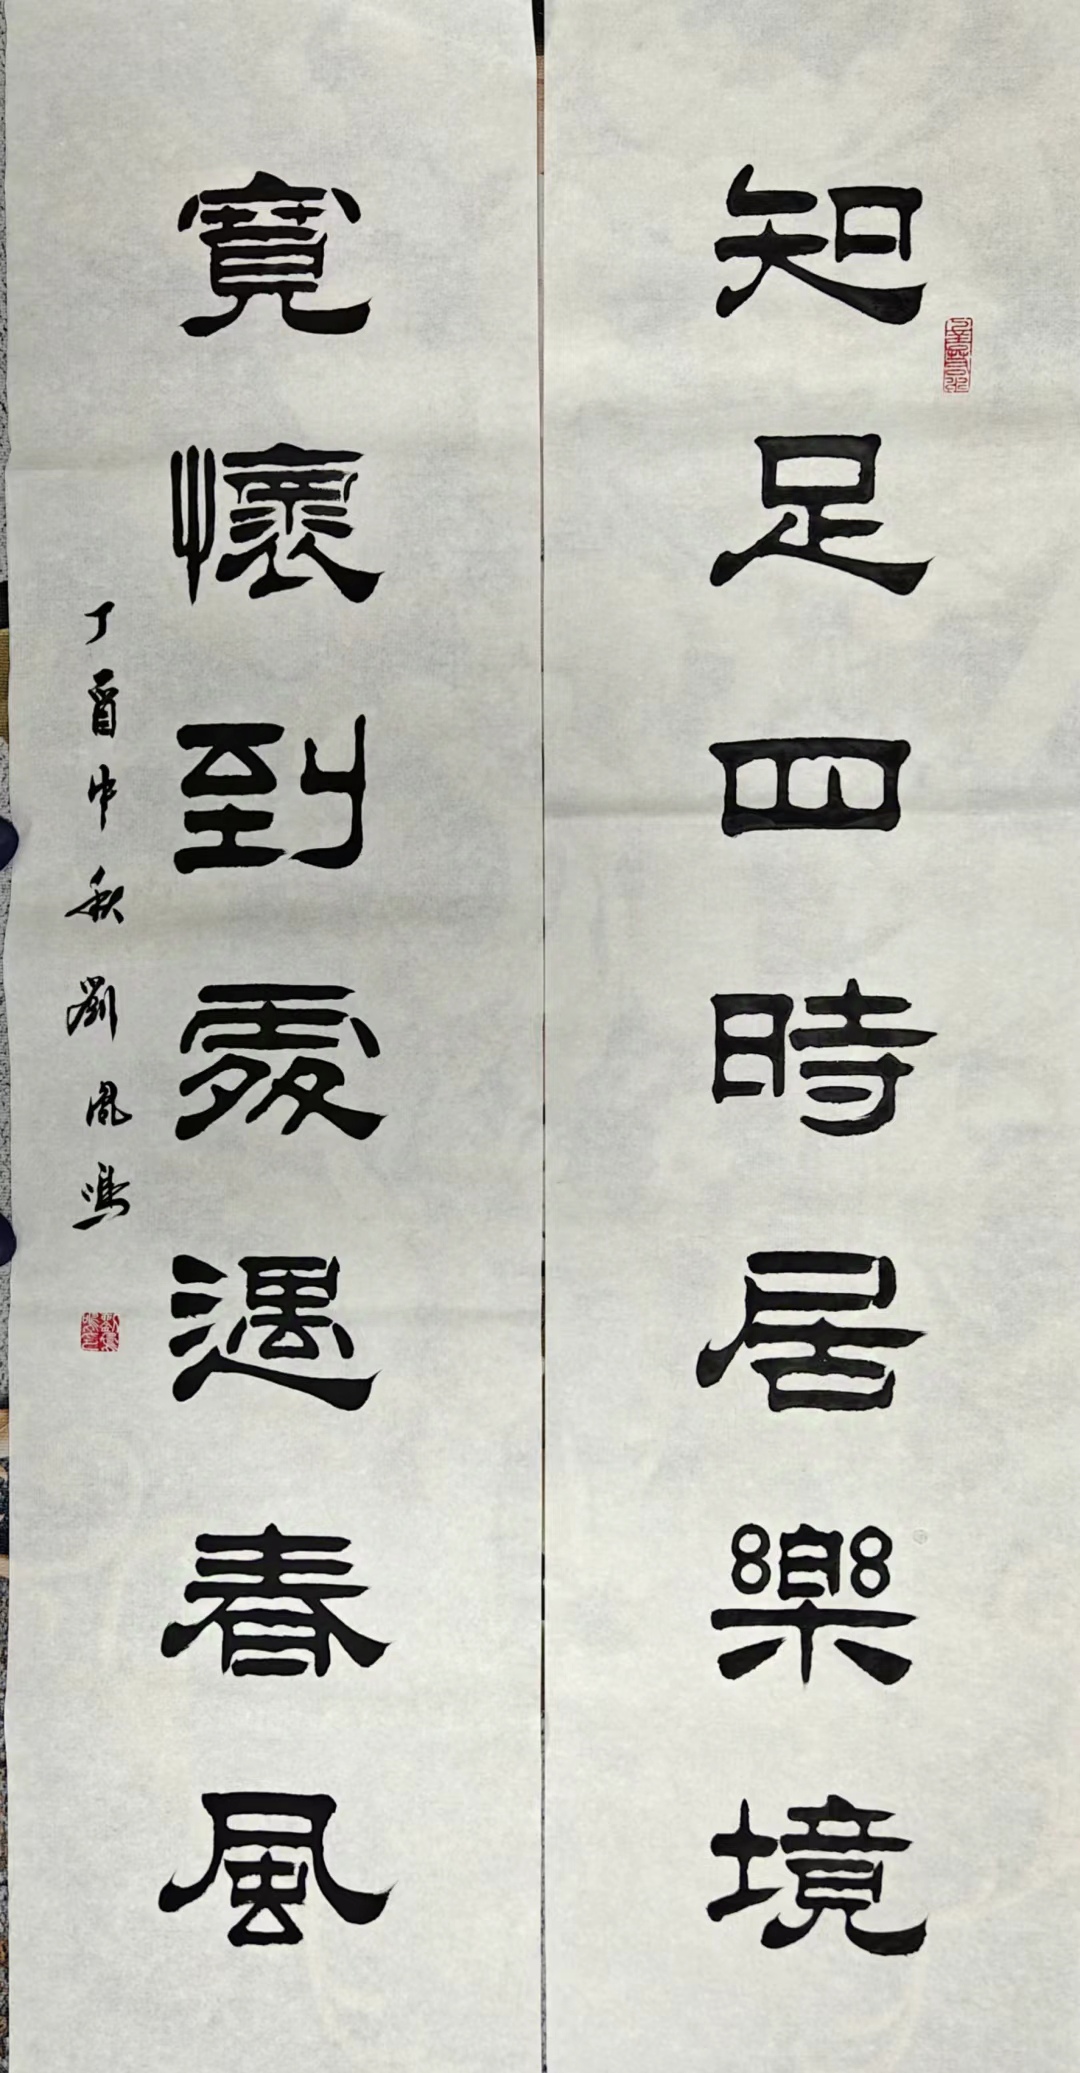 知足四時居樂境
寬懷到處遇春風
丁酉中秋劉鳳